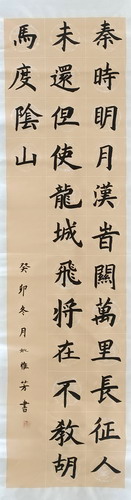 秦時明月漢旹關萬里長征人
未還但使龍城飛将在不教胡
馬度陰山
癸卯冬月維芳書